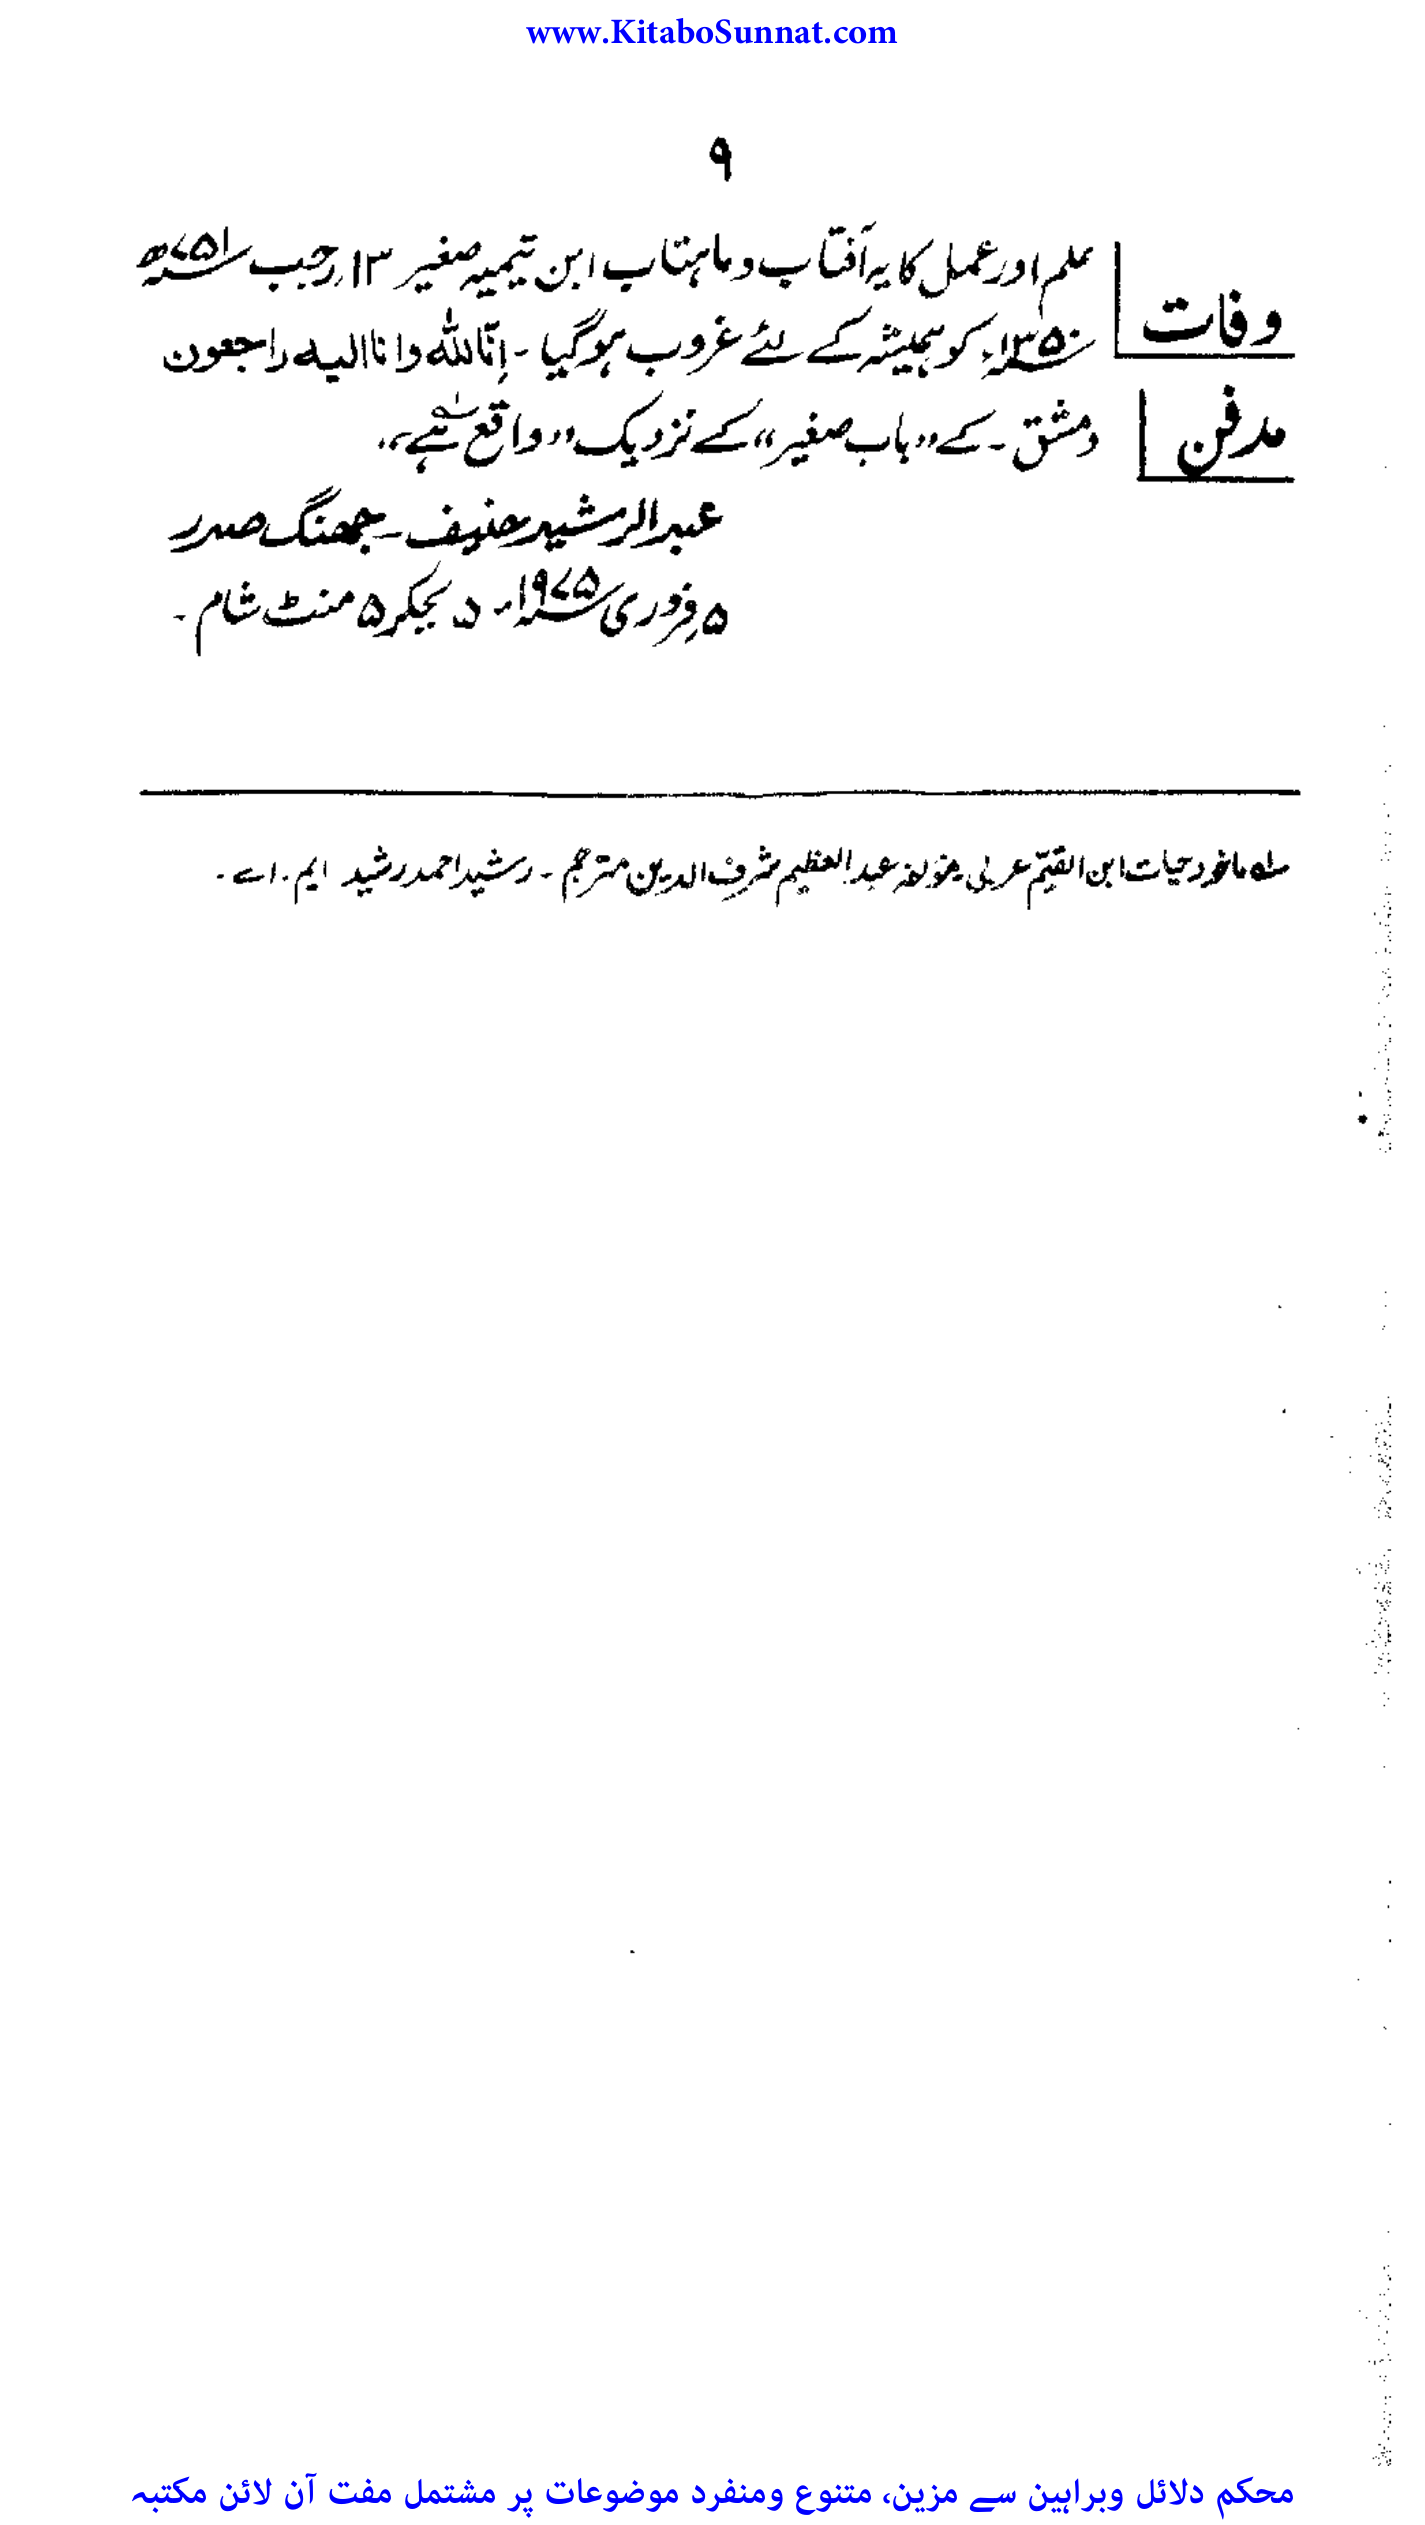 www.KitaboSunnat.com
۹
وفات علم اور عمل کا یہ آفتاب و ماہتاب ابن تیمیہ صغیر ۱۳ رجب ۷۵۱ھ
۱۳۵۰ء کو ہمیشہ کے لئے غروب ہو گیا ۔ اِنّا للہ وانا الیہ راجعون
مدفن دمشق ۔ کے "باب صغیر" کے نزدیک "واقع ہے"۔ ۱ے
عبدالرشید حنیف ۔ جھنگ صدر
۵ فروری ۱۹۷۵ء ۔ ۵ بجکر ۵ منٹ شام ۔
۱ے ماخوذ حیات ابن القیّم عربی مؤلفہ عبدالعظیم شرف الدین مترجم ۔ رشید احمد رشید ایم ۔ اے ۔
محکم دلائل وبراہین سے مزین، متنوع ومنفرد موضوعات پر مشتمل مفت آن لائن مکتبہ